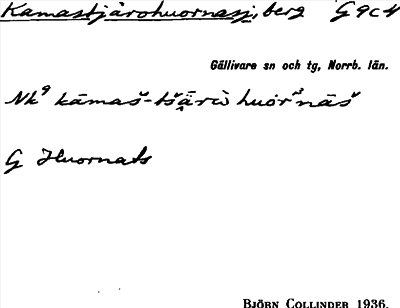 Kamastjårohuornasj, berg G 9c4
Gällivare sn och tg, Norrb. län.
Nk⁹ kāmaš-tšā̤rὼ huὁrᵊnāš
G Huornats
BJÖRN COLLINDER 1936.